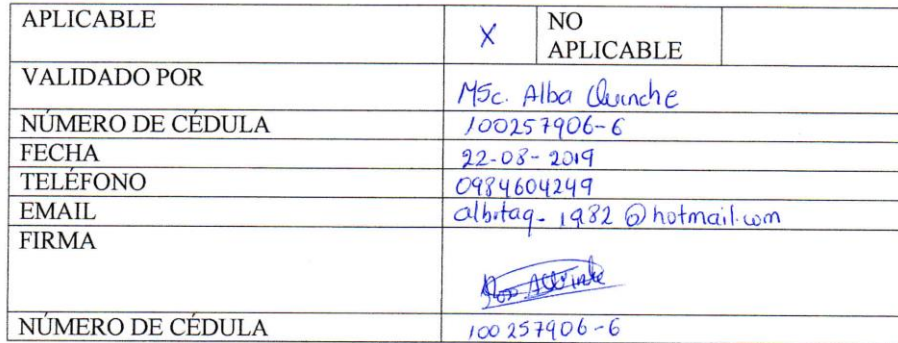 APLICABLE X NO APLICABLE
VALIDADO POR MSc. Alba Quinche
NÚMERO DE CÉDULA 100257906-6
FECHA 22-08-2019
TELÉFONO 0984604249
EMAIL albitaq-1982@hotmail.com
FIRMA
NÚMERO DE CÉDULA 100257906-6